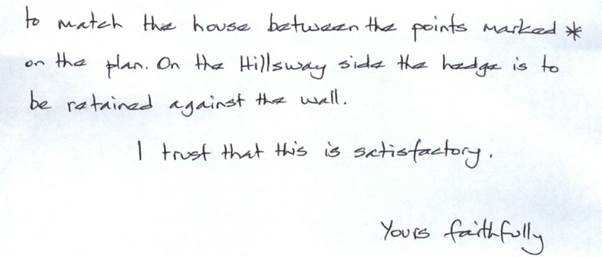 to match the house between the points marked *
on the plan. On the Hillsway side the hedge is to
be retained against the wall.
I trust that this is satisfactory.
Yours faithfully